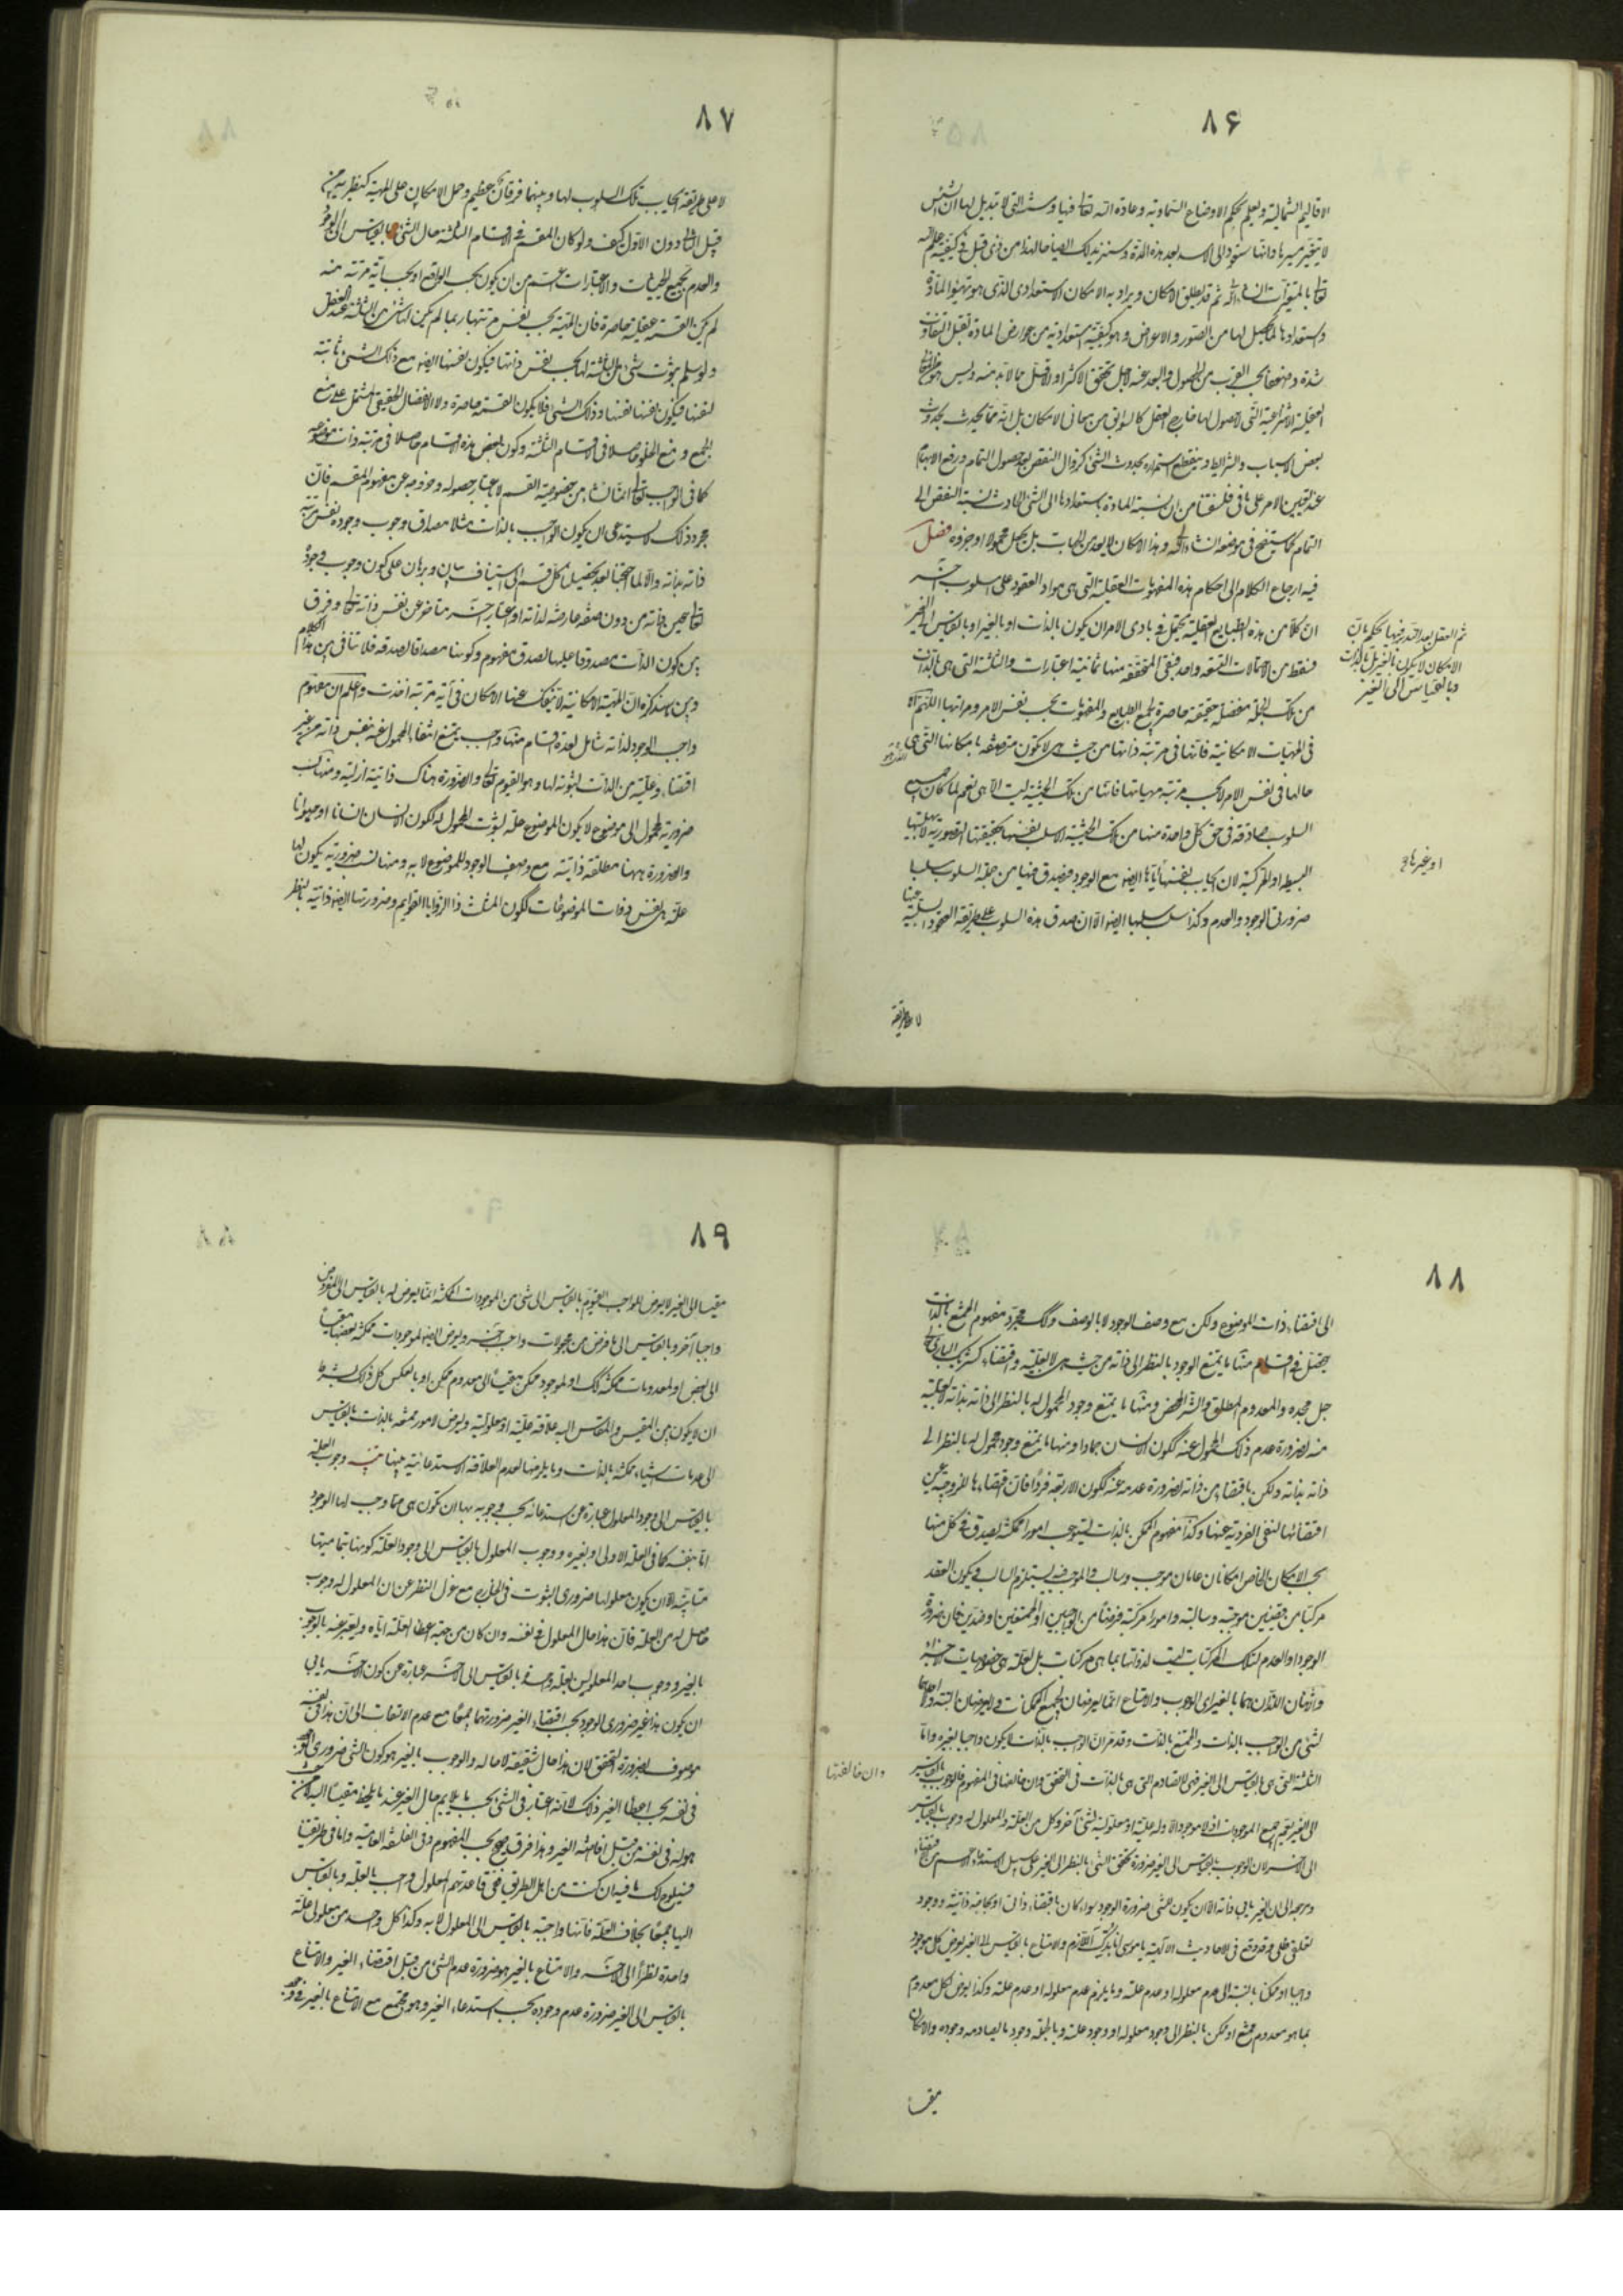 ٨۶
الاقاليم الشمالية ويعلم بحكم الاوضاع السماوية وعادة الله تعالى فيها وسنته التي لا تبديل لها ان الشمس
لا يتغير مسيرها وانها ستعود الى الاسد بعد هذه المدة
تعالى بالمتغيرات ان شاء الله ثم قد يطلق الامكان ويراد به الامكان الاستعدادى الذى هو تهيؤ المادة
واستعدادها لما يحصل لها من الصور والاعراض وهو كيفية استعدادية من عوارض المادة تقبل التفاوت
شدة وضعفا بحسب القرب من الحصول والبعد عنه لاجل تحقق الاكثر او الاقل مما لا بد منه وليس هو من المعانى
العقلية الانتزاعية التي لا حصول لها خارج العقل كالسوابق من معانى الامكان بل انه مما يحدث بحدوث
بعض الاسباب والشرائط وينقطع استمراره بحدوث الشئ كزوال النقص بعد حصول التمام ورفع الابهام
عند تعين الامر على ما فى فلسفتنا من ان نسبة المادة باستعدادها الى الشئ الحادث نسبة النقص الى
التمام كما سيتضح فى موضعه ان شاء الله وهذا الامكان لا يعد من الجهات بل يجعل محمولا او جزؤه فصل
فيه ارجاع الكلام الى احكام هذه المفهومات العقلية التى هى مواد العقود على اسلوب آخر
ان كلا من هذه الطبايع العقلية يحتمل فى بادى الامر ان يكون بالذات او بالغير او بالقياس الى الغير
فسقط من الاحتمالات التسعة واحد فبقى المتحققة منها ثمانية اعتبارات والثلثة التى هى بالذات
من تلك الجملة منفصلة حقيقية حاصرة لجميع الطبايع والمفهومات بحسب نفس الامر ومراتبها اللهم الا
فى المهيات الامكانية فانها فى مرتبة ذاتها من حيث هى لا تكون متصفة بامكانها التى هى
حالها فى نفس الامر لا بحسب مرتبة مهياتها فانها من تلك الحيثية ليست الا هى نعم لما كان جميع
السلوب صادقة فى حق كل واحدة منها من تلك الحيثية الا سلب نفسها بحقيقتها التصورية
البسيطة او المركبة لان ايجاب نفسها اياها ايضا مع الوجود فيصدق فيها من جملة السلوب سلب
ضرورتى الوجود والعدم وكذا سلب سلبها ايضا الا ان صدق هذه السلوب على طريقة العقود السلبية عنها
ثم العقل بعد التدبر فيها يحكم بان
الامكان لا يكون بالغير بل بالذات
وبالقياس الى الغير
او غيرها
لا على طريقة
٨٧
لا على طريقة ايجاب تلك السلوب لها وبينهما فرقان عظيم وحمل الامكان على المهية كنظيريه من
قبيل الثانى دون الاول كيف ولو كان المقسم فى الاقسام الثلثة حال الشئ بالقياس الى الوجود
والعدم بجميع الحيثيات والاعتبارات اعم من ان يكون بحسب الواقع او بحسب اية مرتبة منه
لم يكن القسمة عقلية حاصرة فان المهية بحسب نفس مرتبتها ربما لم يكن لها شئ من الثلثة عند العقل
ولو سلم ثبوت شئ من الثلثة لها بحسب نفس ذاتها فيكون نفسها ايضا مع ذلك الشئ ثابتة
لنفسها فيكون نفسها نفسها وذلك الشئ فلا يكون القسمة حاصرة ولا الانفصال الحقيقى المشتمل على منع
الجمع ومنع الخلو حاصلا فى الاقسام الثلثة وكون بعض هذه الاقسام حاصلا فى مرتبة ذات موضوعه
كما فى الواجب تعالى انما نشأ من خصوصية القسم لا باعتبار حصوله وخروجه عن مفهوم المقسم فان
مجرد ذلك لا يستدعى ان يكون الواجب بالذات مثلا مصداق وجوب وجوده نفس مرتبة
ذاته بذاته والا لما احتجنا بعد تحصيل كل قسم الى استيناف بيان وبرهان على كون وجوب وجوده
تعالى عين ذاته من دون صفة عارضة لذاته او اعتبار آخر متاخر عن نفس ذاته تعالى وفرق
بين كون الذات مصدوقا عليها لصدق مفهوم وكونها مصداقا لصدقه فلا تنافى بين هذا الكلام
وبين ما سنذكره ان المهية الامكانية لا تنفك عنها الامكان فى اية مرتبة اخذت واعلم ان مفهوم
واجب الوجود لذاته شامل لعدة اقسام منها واجب يمتنع انتفاء المحمول عنه بنفس ذاته من غير
اقتضاء وعلية من الذات لثبوته لها وهو القيوم تعالى والضرورة هناك ذاتية ازلية ومنها نسب
ضرورية لمحمول الى موضوع لا يكون الموضوع علة لثبوت المحمول له ككون الانسان انسانا او حيوانا
والضرورة ههنا مطلقة ذاتية مع وصف الوجود للموضوع لا به ومنها نسب ضرورية يكون لها
علة هى نفس ذوات الموضوعات ككون المثلث ذا الزوايا القوايم وضرورتها ايضا ذاتية بالنظر
٨٨
الى اقتضاء ذات الموضوع ولكن مع وصف الوجود لا بالوصف وكذلك مجرد مفهوم الممتنع بالذات
يحصل فى اقسام منها ما يمتنع الوجود بالنظر الى ذاته من حيث هى لا بعلية واقتضاء كشريك البارى
جل مجده والمعدوم المطلق والشر المحض ومنها ما يمتنع وجود المحمول له بالنظر الى ذاته بذاته لا بعلية
منه لضرورة عدم ذلك المحمول عنه ككون الانسان جمادا ومنها ما يمتنع وجود محمول له بالنظر الى
ذاته بذاته ولكن باقتضاء من ذاته لضرورة عدمه عنه ككون الاربعة فردا فان اقتضاءها للزوجية عين
اقتضائها لنفى الفردية عنها وكذا مفهوم الممكن بالذات يستوجب امورا ممكنة يصدق فى كل منها
بحسب الامكان الخاص امكانان عامان موجب وسالب والموجب فيه يستلزم السالب ويكون العقد
مركبا من قضيتين موجبة وسالبة وامورا مركبة فرضا من الواجبين او الممتنعين او ضدين فان ضرورة
الوجود او العدم لتلك المركبات ليست لذواتها بما هى مركبات بل لعلة هى خصوصيات الاجزاء
والاثنان اللذان هما بالغير اى الوجوب والامتناع انما يعرضان لجميع الممكنات ولا يعرضان البتة
لشئ من الواجب بالذات والممتنع بالذات وقد مر ان الواجب بالذات لا يكون واجبا لغيره واما
الثلثة التى هى بالقياس الى الغير فهى لا تصادم التى هى بالذات فى التحقق وان خالفها فى المفهوم فالوجوب بالقياس
الى الغير يعم جميع الموجودات اذ لا موجود الا وله علية او معلولية لشئ آخر وكل من العلة والمعلول له وجوب بالقياس
الى الآخر لان الوجوب بالقياس الى الغير ضرورة تحقق الشئ بالنظر الى الغير على سبيل الاستدعاء الاعم من الاقتضاء
ومرجعه الى ان الغير يابى ذاته الا ان يكون للشئ ضرورة الوجود سواء كان باقتضاء ذاتى او بحاجة ذاتية ووجود
تعلقى ظلى وقد وقع فى الاحاديث الالهية يا موسى انا بدك اللازم والامتناع بالقياس الى الغير يعرض كل موجود
واجبا او ممكنا بالنسبة الى عدم معلوله او عدم علته وما يلزم عدم معلوله او عدم علته وكذا يعرض لكل معدوم
بما هو معدوم ممتنع او ممكن بالنظر الى وجود معلوله او وجود علته وبالجملة وجود ما يصادمه وجوده والامكان
وان خالفتها
مقيسا
٨٩
مقيسا الى الغير لا يعرض للواجب القيوم بالقياس الى شئ من الموجودات الممكنة انما يعرض له بالقياس الى المفروض
واجبا آخر وبالقياس الى ما فرض من مجعولات واجب آخر ويعرض ايضا لموجودات ممكنة بعضها مقيسا
الى بعض او لمعدومات ممكنة كذلك او لموجود ممكن مقيسا الى معدوم ممكن او بالعكس كل ذلك بشرط
ان لا يكون بين المقيس والمقاس اليه علاقة علية او معلولية ويعرض لامور ممتنعة بالذات بالقياس
الى عدمات اشياء ممكنة بالذات وما يلزمها لعدم العلاقة الاستدعائية بينها تنبيه وجوب العلة
بالقياس الى وجود المعلول عبارة عن استدعائه بحسب وجوبه بها ان تكون هى مما وجب لها الوجود
اما بنفسه كما فى العلة الاولى او بغيره ووجوب المعلول بالقياس الى وجود العلة كونها بتماميتها
متابية الا ان يكون معلولها ضرورى الثبوت فى الخارج مع عزل النظر عن ان المعلول له وجوب
حاصل له من العلة فان هذا حال المعلول فى نفسه وان كان من جهة اعطاء العلة اياه ويعبر عنه بالوجوب
بالغير ووجوب احد المعلولين لعلة واحدة بالقياس الى الآخر عبارة عن كون الآخر يابى
ان يكون هذا غير ضرورى الوجود بحسب اقتضاء الغير ضرورتهما جميعا مع عدم الالتفات الى ان هذا فى نفسه
موصوف بضرورة التحقق لان هذا حال شقيقه لا حاله والوجوب بالغير هو كون الشئ ضرورى الوجود
فى نفسه بحسب اعطاء الغير ذلك لا انه اعتبار فى الشئ بحسب ما يلايم حال الغير عند ما يلحظ مقيسا اليه
هو له فى نفسه من قبل افاضة الغير وهذا فرق بحسب المفهوم وفى الفلسفة العامية واما فى طريقتنا
فسيلوح لك ما فيه ان كنت من اهل الطريق ففى قاعدتهم المعلول واجب بالعلة وبالقياس
اليها جميعا بخلاف العلة فانها واجبة بالقياس الى المعلول لا به وكذا كل واحد من معلولى علة
واحدة نظرا الى الآخر والامتناع بالغير هو ضرورة عدم الشئ من قبل اقتضاء الغير والامتناع
بالقياس الى الغير ضرورة عدم وجوده بحسب استدعاء الغير وهو يجتمع مع الامتناع بالغير